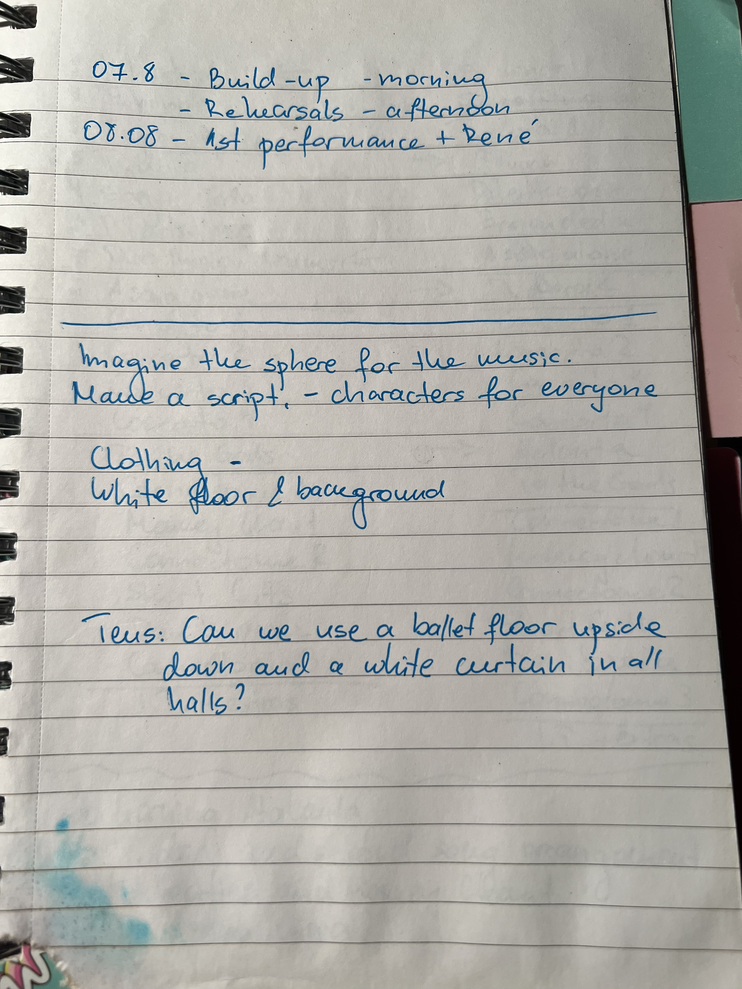 07.8 - Build-up - morning
- Rehearsals - afternoon
08.08 - 1st performance + René
Imagine the sphere for the music.
Make a script. - characters for everyone
Clothing -
White floor & background
Teus: Can we use a ballet floor upside
down and a white curtain in all
halls?